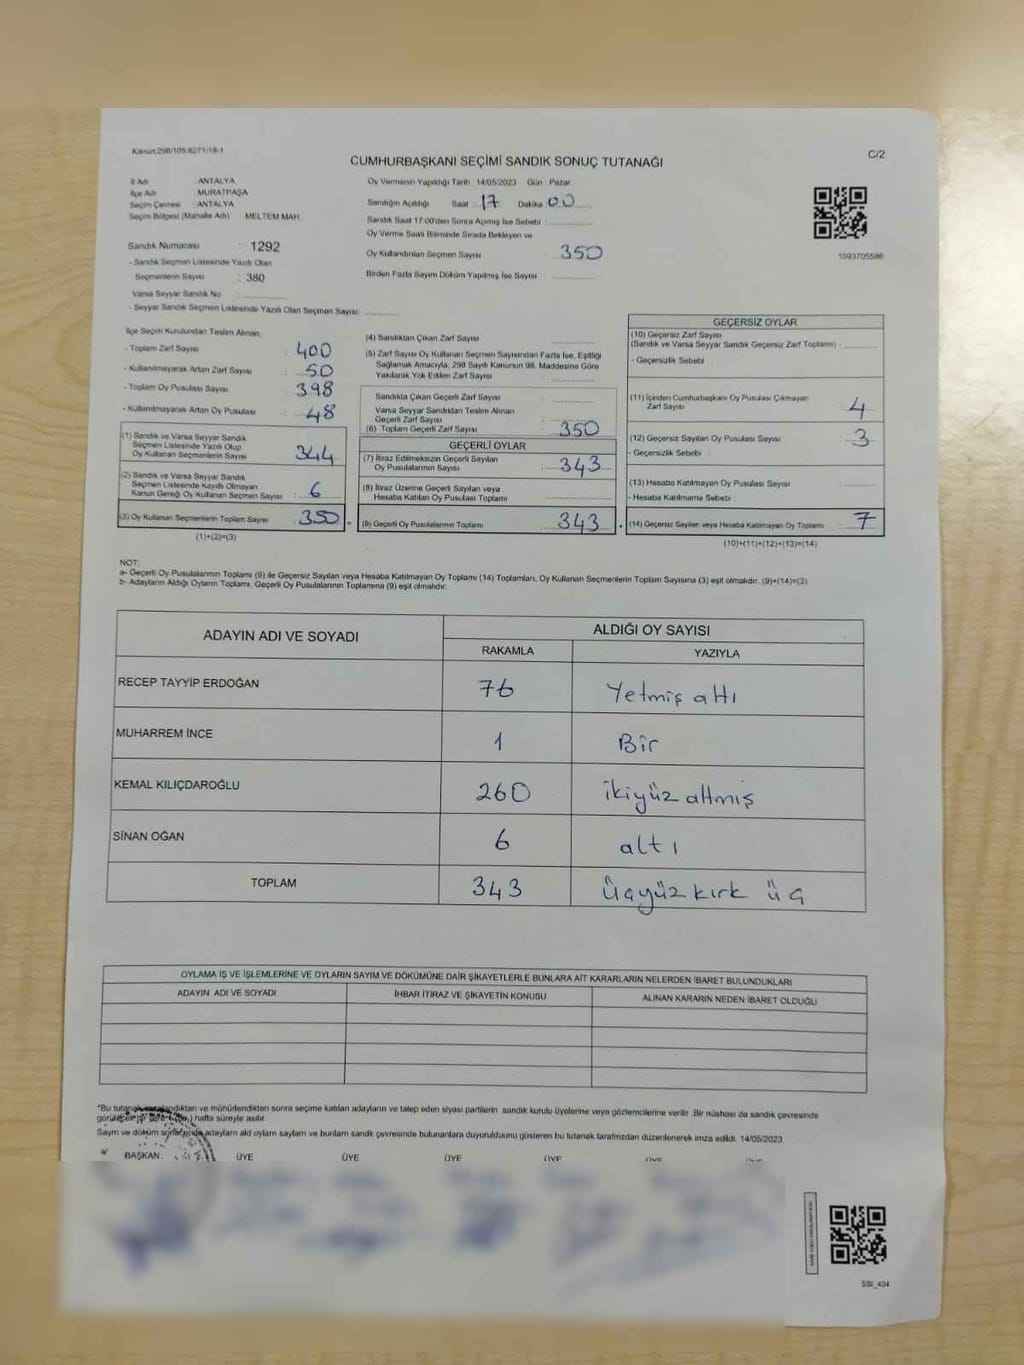 Kanun:298/105,6271/18-1
CUMHURBAŞKANI SEÇİMİ SANDIK SONUÇ TUTANAĞI
C/2
İl Adı : ANTALYA
İlçe Adı : MURATPAŞA
Seçim Çevresi : ANTALYA
Seçim Bölgesi (Mahalle Adı) : MELTEM MAH.
Sandık Numarası : 1292
- Sandık Seçmen Listesinde Yazılı Olan
Seçmenlerin Sayısı : 380
Varsa Seyyar Sandık No :
- Seyyar Sandık Seçmen Listesinde Yazılı Olan Seçmen Sayısı:
Oy Vermenin Yapıldığı Tarih : 14/05/2023 Gün : Pazar
Sandığın Açıldığı Saat : 17 Dakika : 00
Sandık Saat 17:00'den Sonra Açılmış İse Sebebi :
Oy Verme Saati Bitiminde Sırada Bekleyen ve
Oy Kullandırılan Seçmen Sayısı : 350
Birden Fazla Sayım Döküm Yapılmış İse Sayısı :
1093705586
İlçe Seçim Kurulundan Teslim Alınan;
- Toplam Zarf Sayısı : 400
- Kullanılmayarak Artan Zarf Sayısı : 50
- Toplam Oy Pusulası Sayısı : 398
- Kullanılmayarak Artan Oy Pusulası : 48
(1) Sandık ve Varsa Seyyar Sandık
Seçmen Listesinde Yazılı Olup
Oy Kullanan Seçmenlerin Sayısı : 344
(2) Sandık ve Varsa Seyyar Sandık
Seçmen Listesinde Kayıtlı Olmayan
Kanun Gereği Oy Kullanan Seçmen Sayısı : 6
(3) Oy Kullanan Seçmenlerin Toplam Sayısı : 350 =
(1)+(2)=(3)
(4) Sandıktan Çıkan Zarf Sayısı :
(5) Zarf Sayısı Oy Kullanan Seçmen Sayısından Fazla İse, Eşitliği
Sağlamak Amacıyla, 298 Sayılı Kanunun 98. Maddesine Göre
Yakılarak Yok Edilen Zarf Sayısı :
Sandıkta Çıkan Geçerli Zarf Sayısı :
Varsa Seyyar Sandıktan Teslim Alınan
Geçerli Zarf Sayısı :
(6) Toplam Geçerli Zarf Sayısı : 350
GEÇERLİ OYLAR
(7) İtiraz Edilmeksizin Geçerli Sayılan
Oy Pusulalarının Sayısı : 343
(8) İtiraz Üzerine Geçerli Sayılan veya
Hesaba Katılan Oy Pusulası Toplamı :
(9) Geçerli Oy Pusulalarının Toplamı : 343 +
GEÇERSİZ OYLAR
(10) Geçersiz Zarf Sayısı
(Sandık ve Varsa Seyyar Sandık Geçersiz Zarf Toplamı) :
- Geçersizlik Sebebi :
(11) İçinden Cumhurbaşkanı Oy Pusulası Çıkmayan
Zarf Sayısı : 4
(12) Geçersiz Sayılan Oy Pusulası Sayısı : 3
- Geçersizlik Sebebi :
(13) Hesaba Katılmayan Oy Pusulası Sayısı :
- Hesaba Katılmama Sebebi :
(14) Geçersiz Sayılan veya Hesaba Katılmayan Oy Toplamı : 7
(10)+(11)+(12)+(13)=(14)
NOT:
a- Geçerli Oy Pusulalarının Toplamı (9) ile Geçersiz Sayılan veya Hesaba Katılmayan Oy Toplamı (14) Toplamları, Oy Kullanan Seçmenlerin Toplam Sayısına (3) eşit olmalıdır. (9)+(14)=(3)
b- Adayların Aldığı Oyların Toplamı, Geçerli Oy Pusulalarının Toplamına (9) eşit olmalıdır.
ADAYIN ADI VE SOYADI
ALDIĞI OY SAYISI
RAKAMLA YAZIYLA
RECEP TAYYİP ERDOĞAN 76 Yetmiş altı
MUHARREM İNCE 1 Bir
KEMAL KILIÇDAROĞLU 260 ikiyüz altmış
SİNAN OĞAN 6 altı
TOPLAM 343 Üçyüz kırk üç
OYLAMA İŞ VE İŞLEMLERİNE VE OYLARIN SAYIM VE DÖKÜMÜNE DAİR ŞİKAYETLERLE BUNLARA AİT KARARLARIN NELERDEN İBARET BULUNDUKLARI
ADAYIN ADI VE SOYADI İHBAR İTİRAZ VE ŞİKAYETİN KONUSU ALINAN KARARIN NEDEN İBARET OLDUĞU
*Bu tutanak imzalandıktan ve mühürlendikten sonra seçime katılan adayların ve talep eden siyasi partilerin sandık kurulu üyelerine veya gözlemcilerine verilir. Bir nüshası da sandık çevresinde
görülebilir bir yere 1 (bir) hafta süreyle asılır.
Sayım ve döküm sonucunda adayların aldığı oyların sayıları ve bunların sandık çevresinde bulunanlara duyurulduğunu gösteren bu tutanak tarafımızdan düzenlenerek imza edildi. 14/05/2023
BAŞKAN ÜYE ÜYE ÜYE ÜYE ÜYE ÜYE
SSI_404